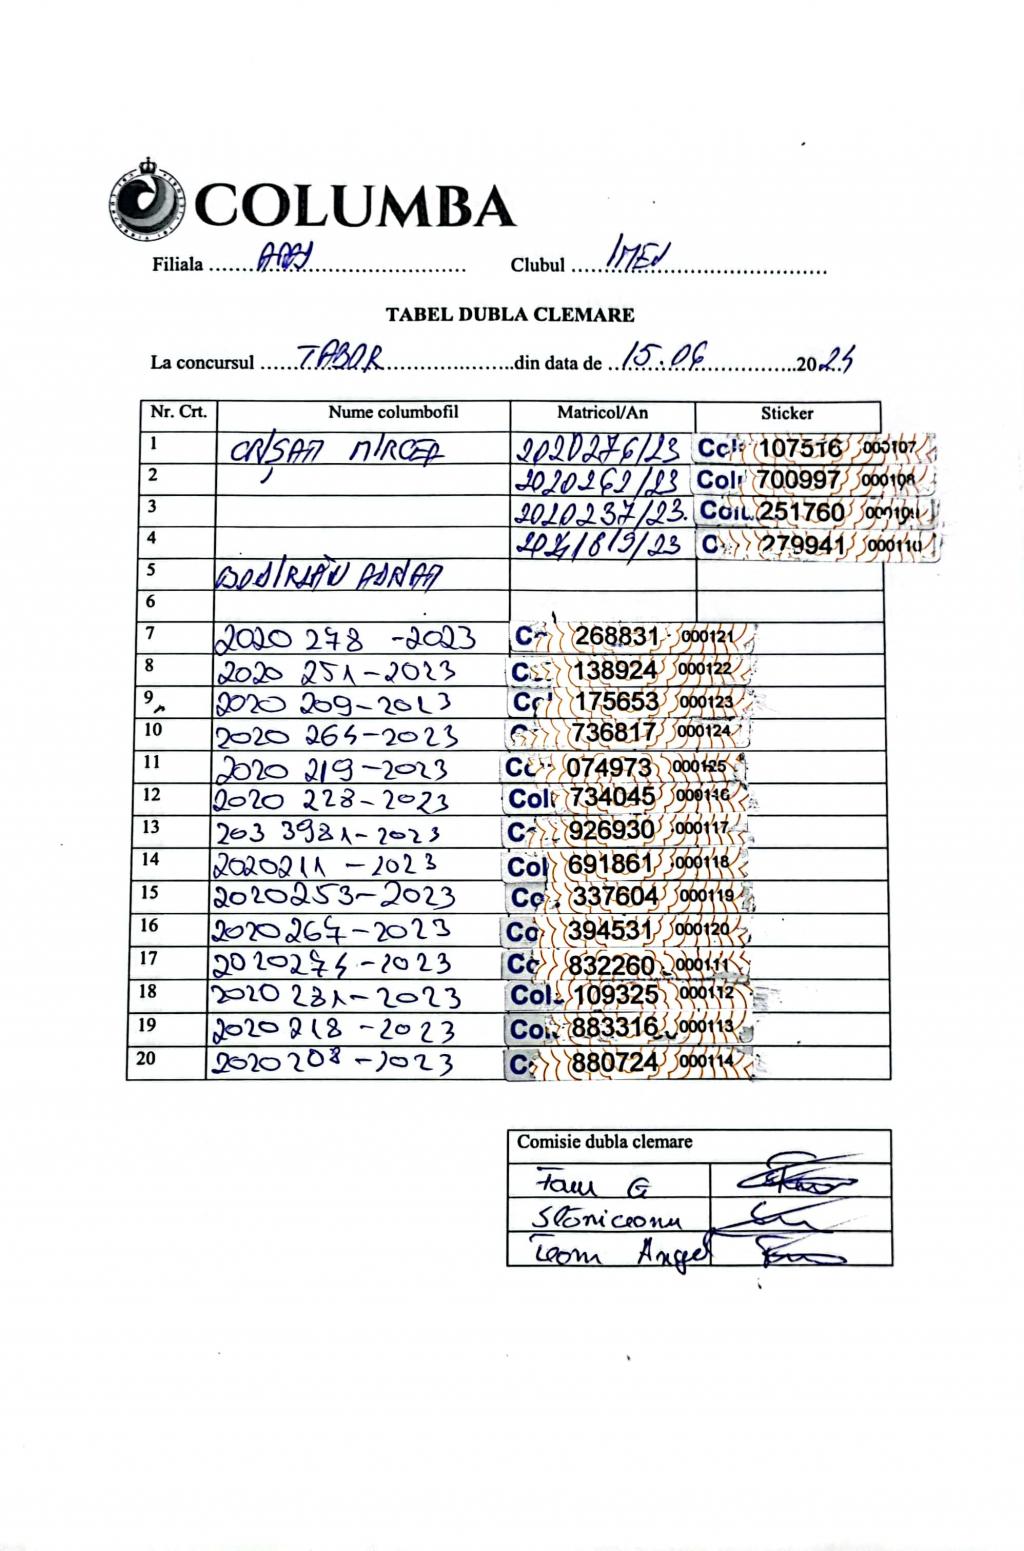 COLUMBA
Filiala ....ARAD.... Clubul ....INEU....
TABEL DUBLA CLEMARE
La concursul ....TABOR....din data de ..15.06....2024
Nr. Crt. Nume columbofil Matricol/An Sticker
1 CRIȘAN MIRCEA 2020276/23 107516 000107
2 2020262/23 700997 000108
3 2020237/23. 251760
4 279941 000110
5
6
7 2020 278 -2023 268831 000121
8 2020 251-2023 138924 000122
9 2020 209-2023 175653 000123
10 2020 264-2023 736817 000124
11 2020 219-2023 074973 000125
12 2020 228-2023 734045 000116
13 203 3981-2023 926930 000117
14 2020211 -2023 Col 691861 000118
15 2020253-2023 337604 000119
16 2020267-2023 394531 000120
17 2020274-2023 832260 000111
18 2020 281-2023 109325 000112
19 2020218 -2023 883316 000113
20 2020208 -2023 880724 000114
Comisie dubla clemare
Fam G
Stoniceanu
Team Angel